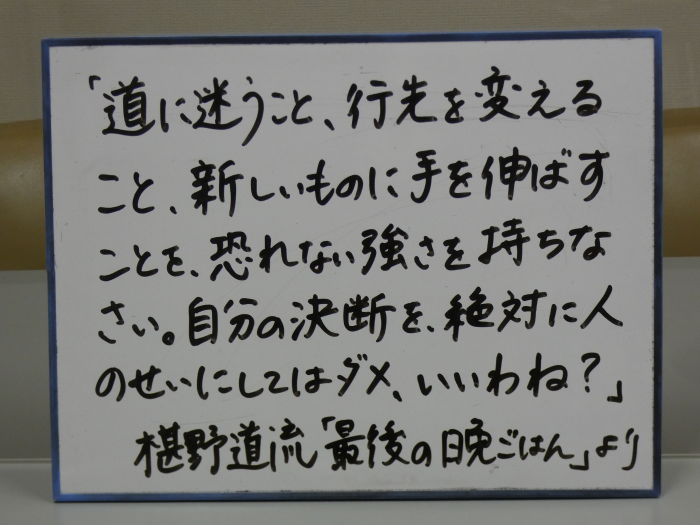 「道に迷うこと、行先を変える
こと、新しいものに手を伸ばす
ことを、恐れない強さを持ちな
さい。自分の決断を、絶対に人
のせいにしてはダメ、いいわね？」
椹野道流「最後の晩ごはん」より